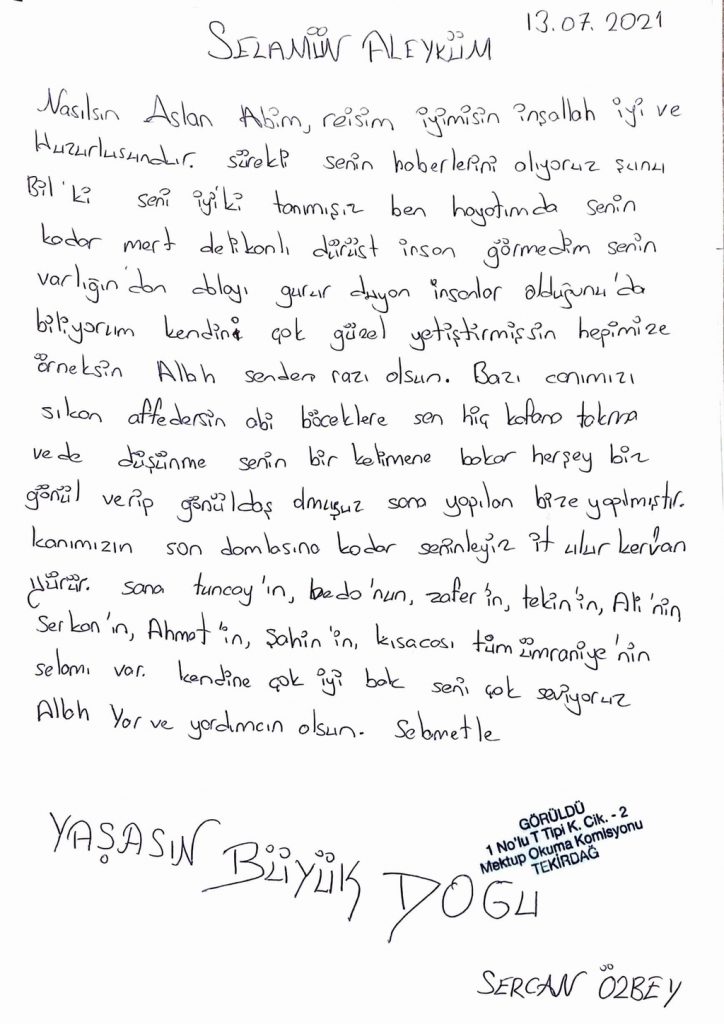 13.07.2021
SELAMÜN ALEYKÜM
Nasılsın Aslan Abim, reisim iyimisin inşallah iyi ve
Huzurlusundır. sürekli senin haberlerini alıyoruz şunu
Bil'ki seni iyi'ki tanımışız ben hayatımda senin
kadar mert delikanlı dürüst insan görmedim senin
varlığın'dan dolayı gurur duyan insanlar olduğunu'da
biliyorum kendini çok güzel yetiştirmişsin hepimize
örneksin Allah senden razı olsun. Bazı canımızı
sıkan affedersin abi böceklere sen hiç kafana takma
ve de düşünme senin bir kelimene bakar herşey biz
gönül verip gönüldaş olmuşuz sana yapılan bize yapılmıştır.
kanımızın son damlasına kadar seninleyiz it ulur kervan
yürür. sana tuncay'ın, bedo'nun, zafer'in, tekin'in, Ali'nin
Serkan'ın, Ahmet'in, Şahin'in, kısacası tüm ümraniye'nin
selamı var. kendine çok iyi bak seni çok seviyoruz
Allah Yar ve yardımcın olsun. Selametle
YAŞASIN BÜYÜK DOGU
GÖRÜLDÜ
1 No'lu T Tipi K. Cik. - 2
Mektup Okuma Komisyonu
TEKİRDAĞ
SERCAN ÖZBEY